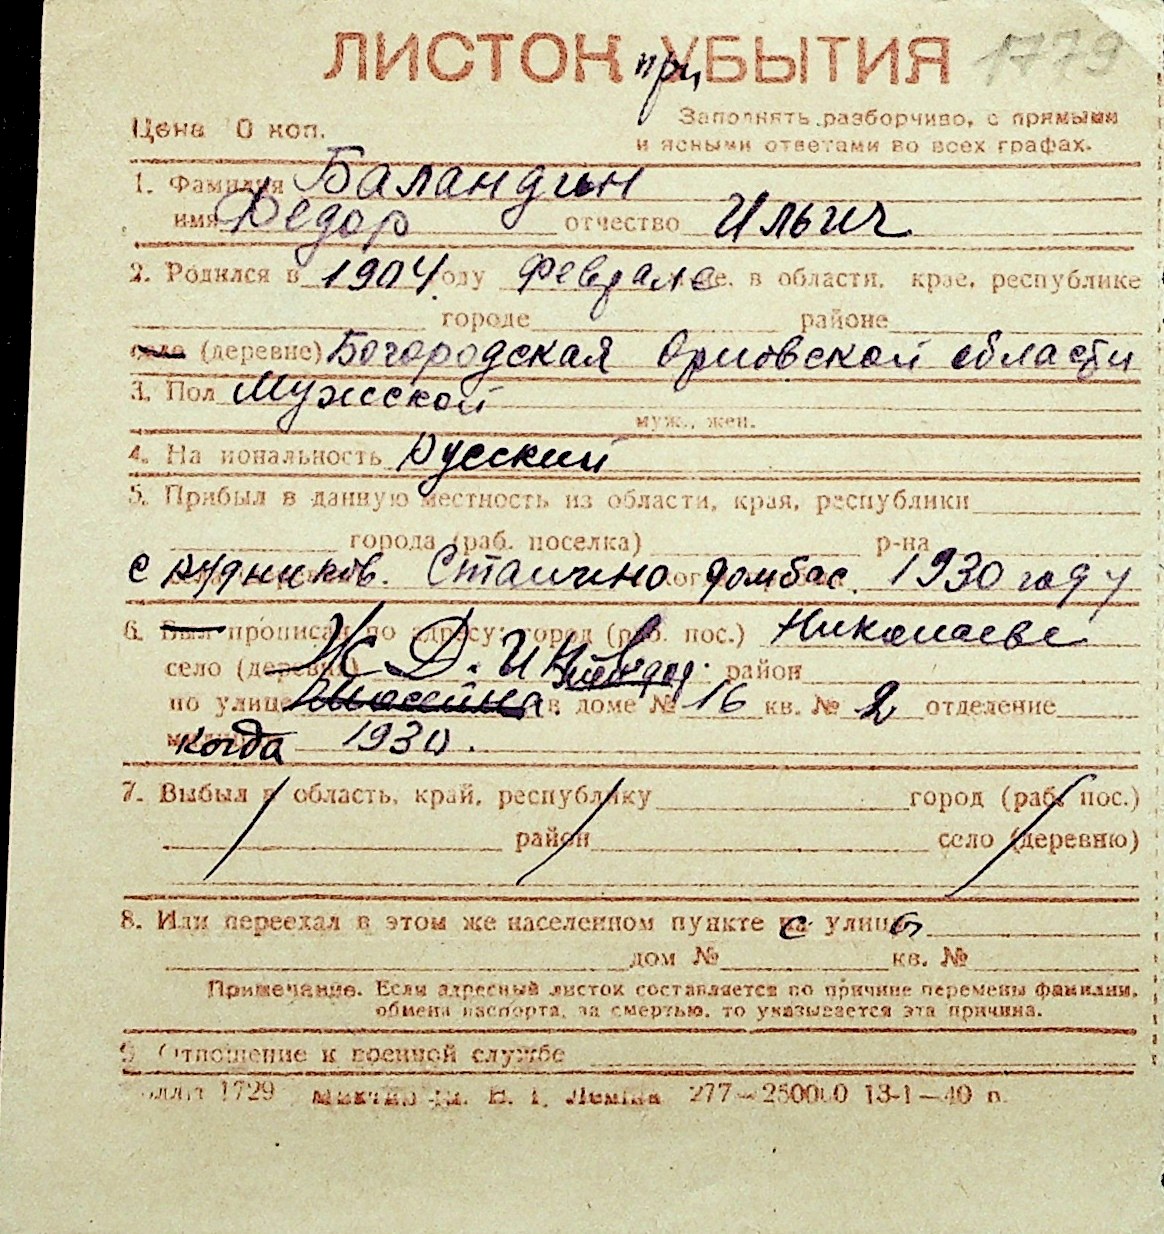 ЛИСТОК при УБЫТИЯ 1779
Цена 0 коп.
Заполнять разборчиво, с прямыми
и ясными ответами во всех графах.
1. Фамилия Баландин
имя Федор отчество Ильич
2. Родился в 1904 году Феврале, в области, крае, республике
городе районе
село (деревне) Богородская Орловской области
3. Пол Мужской
муж., жен.
4. На иональность Русский
5. Прибыл в данную местность из области, края, республики
города (раб. поселка) р-на
с рудников. Сталино домбас. 1930 году
6. Был прописан по адресу: город (раб. пос.) Николаеве
село (деревня) район
по улице в доме № 16 кв. № 2 отделение
когда 1930.
7. Выбыл в область, край, республику город (раб. пос.)
район село (деревню)
8. Или переехал в этом же населенном пункте с улицы
дом № кв. №
Примечание. Если адресный листок составляется по причине перемены фамилии,
обмена паспорта, за смертью, то указывается эта причина.
9. Отношение к военной службе
1729 277—250000 13-1—40 п.